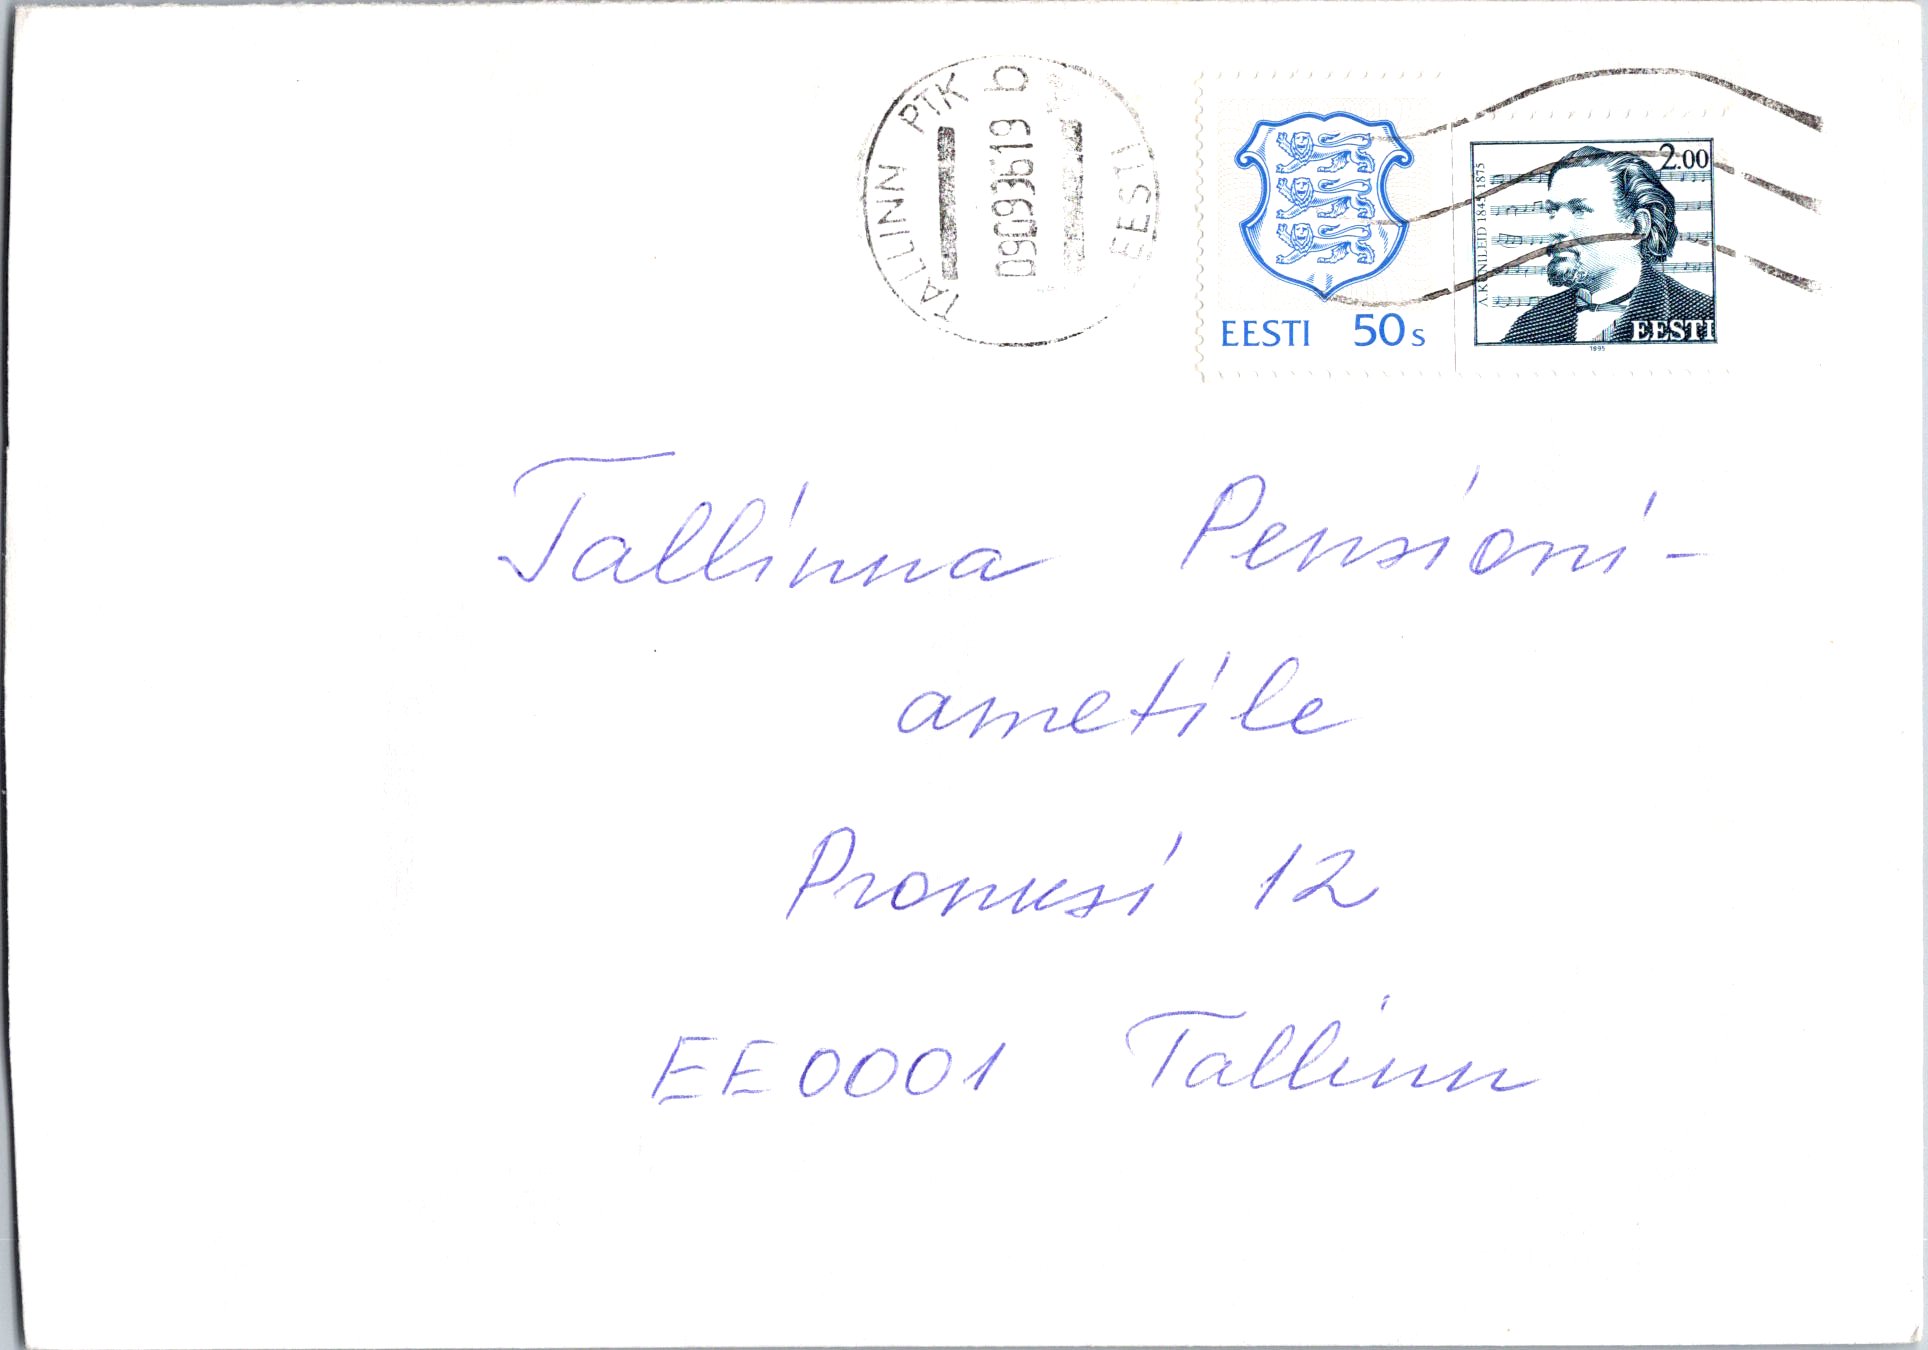 TALLINN PTK b
09093619
EESTI
EESTI 50s
2.00
A. KUNILEID 1845 1875
EESTI
1995
Tallinna Pensioni-
ametile
Pronksi 12
EE0001 Tallinn